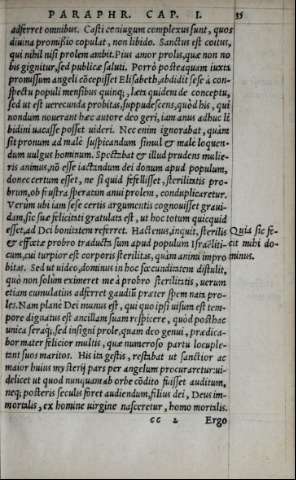 PARAPHR. CAP. I. 35
adferret omnibus. Casti coniugum complexus sunt, quos
diuina promissio copulat, non libido. Sanctus est coitus,
qui nihil nisi prolem ambit. Pius amor prolis, quæ non no
bis gignitur, sed publicæ saluti. Porrò posteaquam iuxta
promissum angeli cōcepisset Elisabeth, abdidit sese à con-
spectu populi mensibus quinq;, læta quidem de conceptu,
sed ut est uerecunda probitas, suppudescens, quòd his, qui
nondum nouerant hæc autore deo geri, iam anus adhuc li
bidini uacasse posset uideri. Nec enim ignorabat, quàm
sit pronum ad malè suspicandum simul & malè loquen-
dum uulgus hominum. Spectabat & illud prudens mulie-
ris animus, nō esse iactandum dei donum apud populum,
donec certum esset, ne si quid fefellisset, sterilitatis pro-
brum, ob frustra speratum anui prolem, conduplicaretur.
Verùm ubi iam sese certis argumentis cognouisset graui-
dam, sic suæ felicitati gratulata est, ut hoc totum quicquid
esset, ad Dei bonitatem referret. Hactenus, inquit, sterilis
& effœtæ probro traducta sum apud populum Israëliti-
cum, cui turpior est corporis sterilitas, quàm animi impro
bitas. Sed ut uideo, dominus in hoc fœcunditatem distulit,
quò non solùm eximeret me à probro sterilitatis, uerum
etiam cumulatius adferret gaudiū præter spem nata pro-
les. Nam planè Dei munus est, qui quo ipsi uisum est tem-
pore dignatus est ancillam suam respicere, quòd posthac
unica feraq;, sed insigni prole, quam deo genui, prædica-
bor mater felicior multis, quæ numeroso partu locuple-
tant suos maritos. His ita gestis, restabat ut sanctior ac
maior huius mysterij pars per angelum procuraretur: ui-
delicet ut quod nunquam ab orbe cōdito fuisset auditum,
neq; posteris seculis foret audiendum, filius dei, Deus im-
mortalis, ex homine uirgine nasceretur, homo mortalis.
cc 2 Ergo
Quia sic fe-
cit mihi do-
minus.